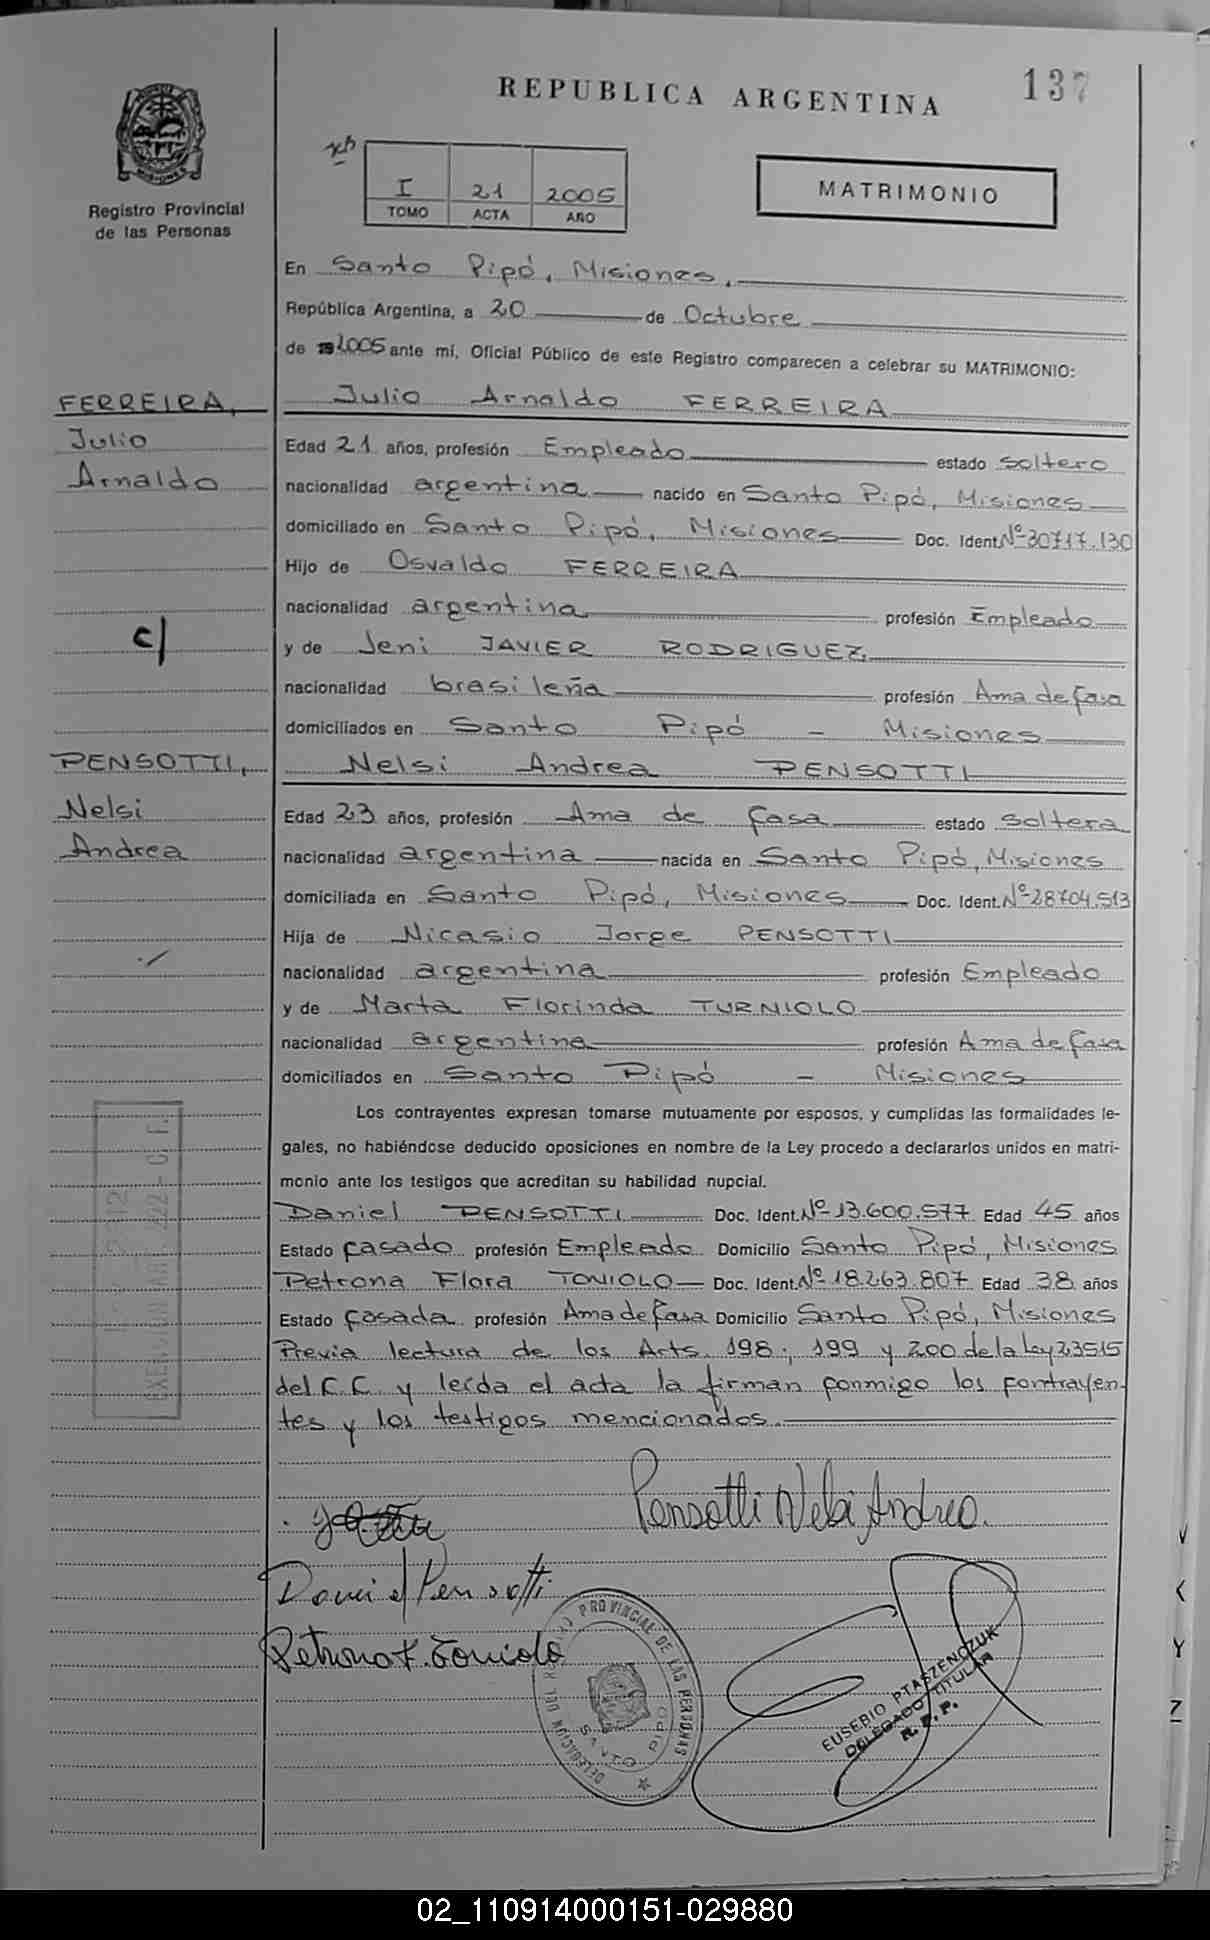 REPUBLICA ARGENTINA
137
I 21 2005
TOMO ACTA AÑO
MATRIMONIO
MISIONES
Registro Provincial
de las Personas
En Santo Pipó, Misiones,
República Argentina, a 20 de Octubre
de 2005 ante mí, Oficial Público de este Registro comparecen a celebrar su MATRIMONIO:
FERREIRA,
Julio
Arnaldo
c/
PENSOTTI,
Nelsi
Andrea
Julio Arnaldo FERREIRA
Edad 21 años, profesión Empleado estado soltero
nacionalidad argentina nacido en Santo Pipó, Misiones
domiciliado en Santo Pipó, Misiones Doc. Ident. Nº 30717.130
Hijo de Osvaldo FERREIRA
nacionalidad argentina profesión Empleado
y de Jeni JAVIER RODRIGUEZ
nacionalidad brasileña profesión Ama de Casa
domiciliados en Santo Pipó - Misiones
Nelsi Andrea PENSOTTI
Edad 23 años, profesión Ama de Casa estado soltera
nacionalidad argentina nacida en Santo Pipó, Misiones
domiciliada en Santo Pipó, Misiones Doc. Ident. Nº 28704.513
Hija de Nicasio Jorge PENSOTTI
nacionalidad argentina profesión Empleado
y de Marta Florinda TURNIOLO
nacionalidad argentina profesión Ama de Casa
domiciliados en Santo Pipó - Misiones
Los contrayentes expresan tomarse mutuamente por esposos, y cumplidas las formalidades le-
gales, no habiéndose deducido oposiciones en nombre de la Ley procedo a declararlos unidos en matri-
monio ante los testigos que acreditan su habilidad nupcial.
Daniel PENSOTTI Doc. Ident. Nº 13.600.577 Edad 45 años
Estado Casado profesión Empleado Domicilio Santo Pipó, Misiones
Petrona Flora TONIOLO Doc. Ident. Nº 18.263.807 Edad 38 años
Estado Casada profesión Ama de Casa Domicilio Santo Pipó, Misiones
Previa lectura de los Arts. 198; 199 y 200 de la Ley 23515
del C.C. y leída el acta la firman conmigo los contrayen-
tes y los testigos mencionados.
Pensotti Nelsi Andrea.
Daniel Pensotti
Petrona F. Toniolo
DELEGACION DEL REGISTRO PROVINCIAL DE LAS PERSONAS
SANTO PIPO
EUSEBIO PTASZENCZUK
DELEGADO TITULAR
R. P. P.
02_110914000151-029880